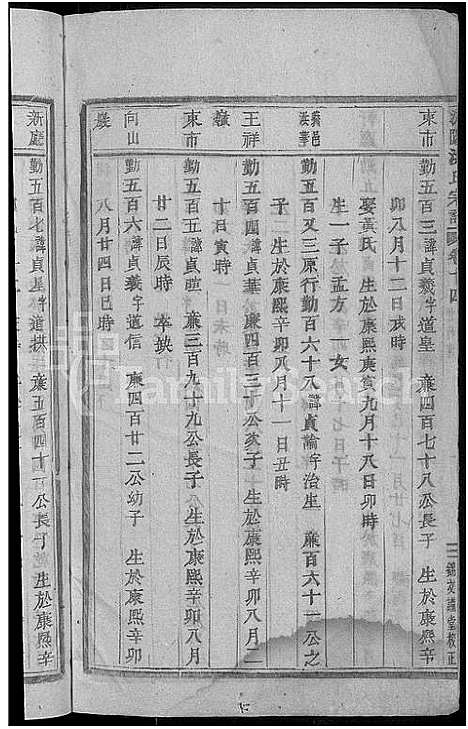 東市
勤五百三諱貞義字道皇 廉四百七十八公長子 生於康熙辛
卯八月十二日戌時
娶黃氏 生於康熙庚寅九月十八日卯時
生一子孟方一女
勤五百又三原行勤百六十八諱貞諭字治生 廉百六十一公之
子 生於康熙辛卯八月十一日丑時
王祥
勤五百四諱貞華 廉四百三十公次子 生於康熙辛卯八月二
廿日寅時
東市
勤五百五諱貞 廉三百九十九公長子 生於康熙辛卯八月
廿二日辰時 卒缺
向山
勤五百六諱貞義字道信 廉四百廿二公幼子 生於康熙辛卯
八月廿四日巳時
新庭
勤五百七諱貞 字道拱 廉五百四十 公長子 生於康熙辛
氏宗譜
卷
四
堂校正
FamilySearch